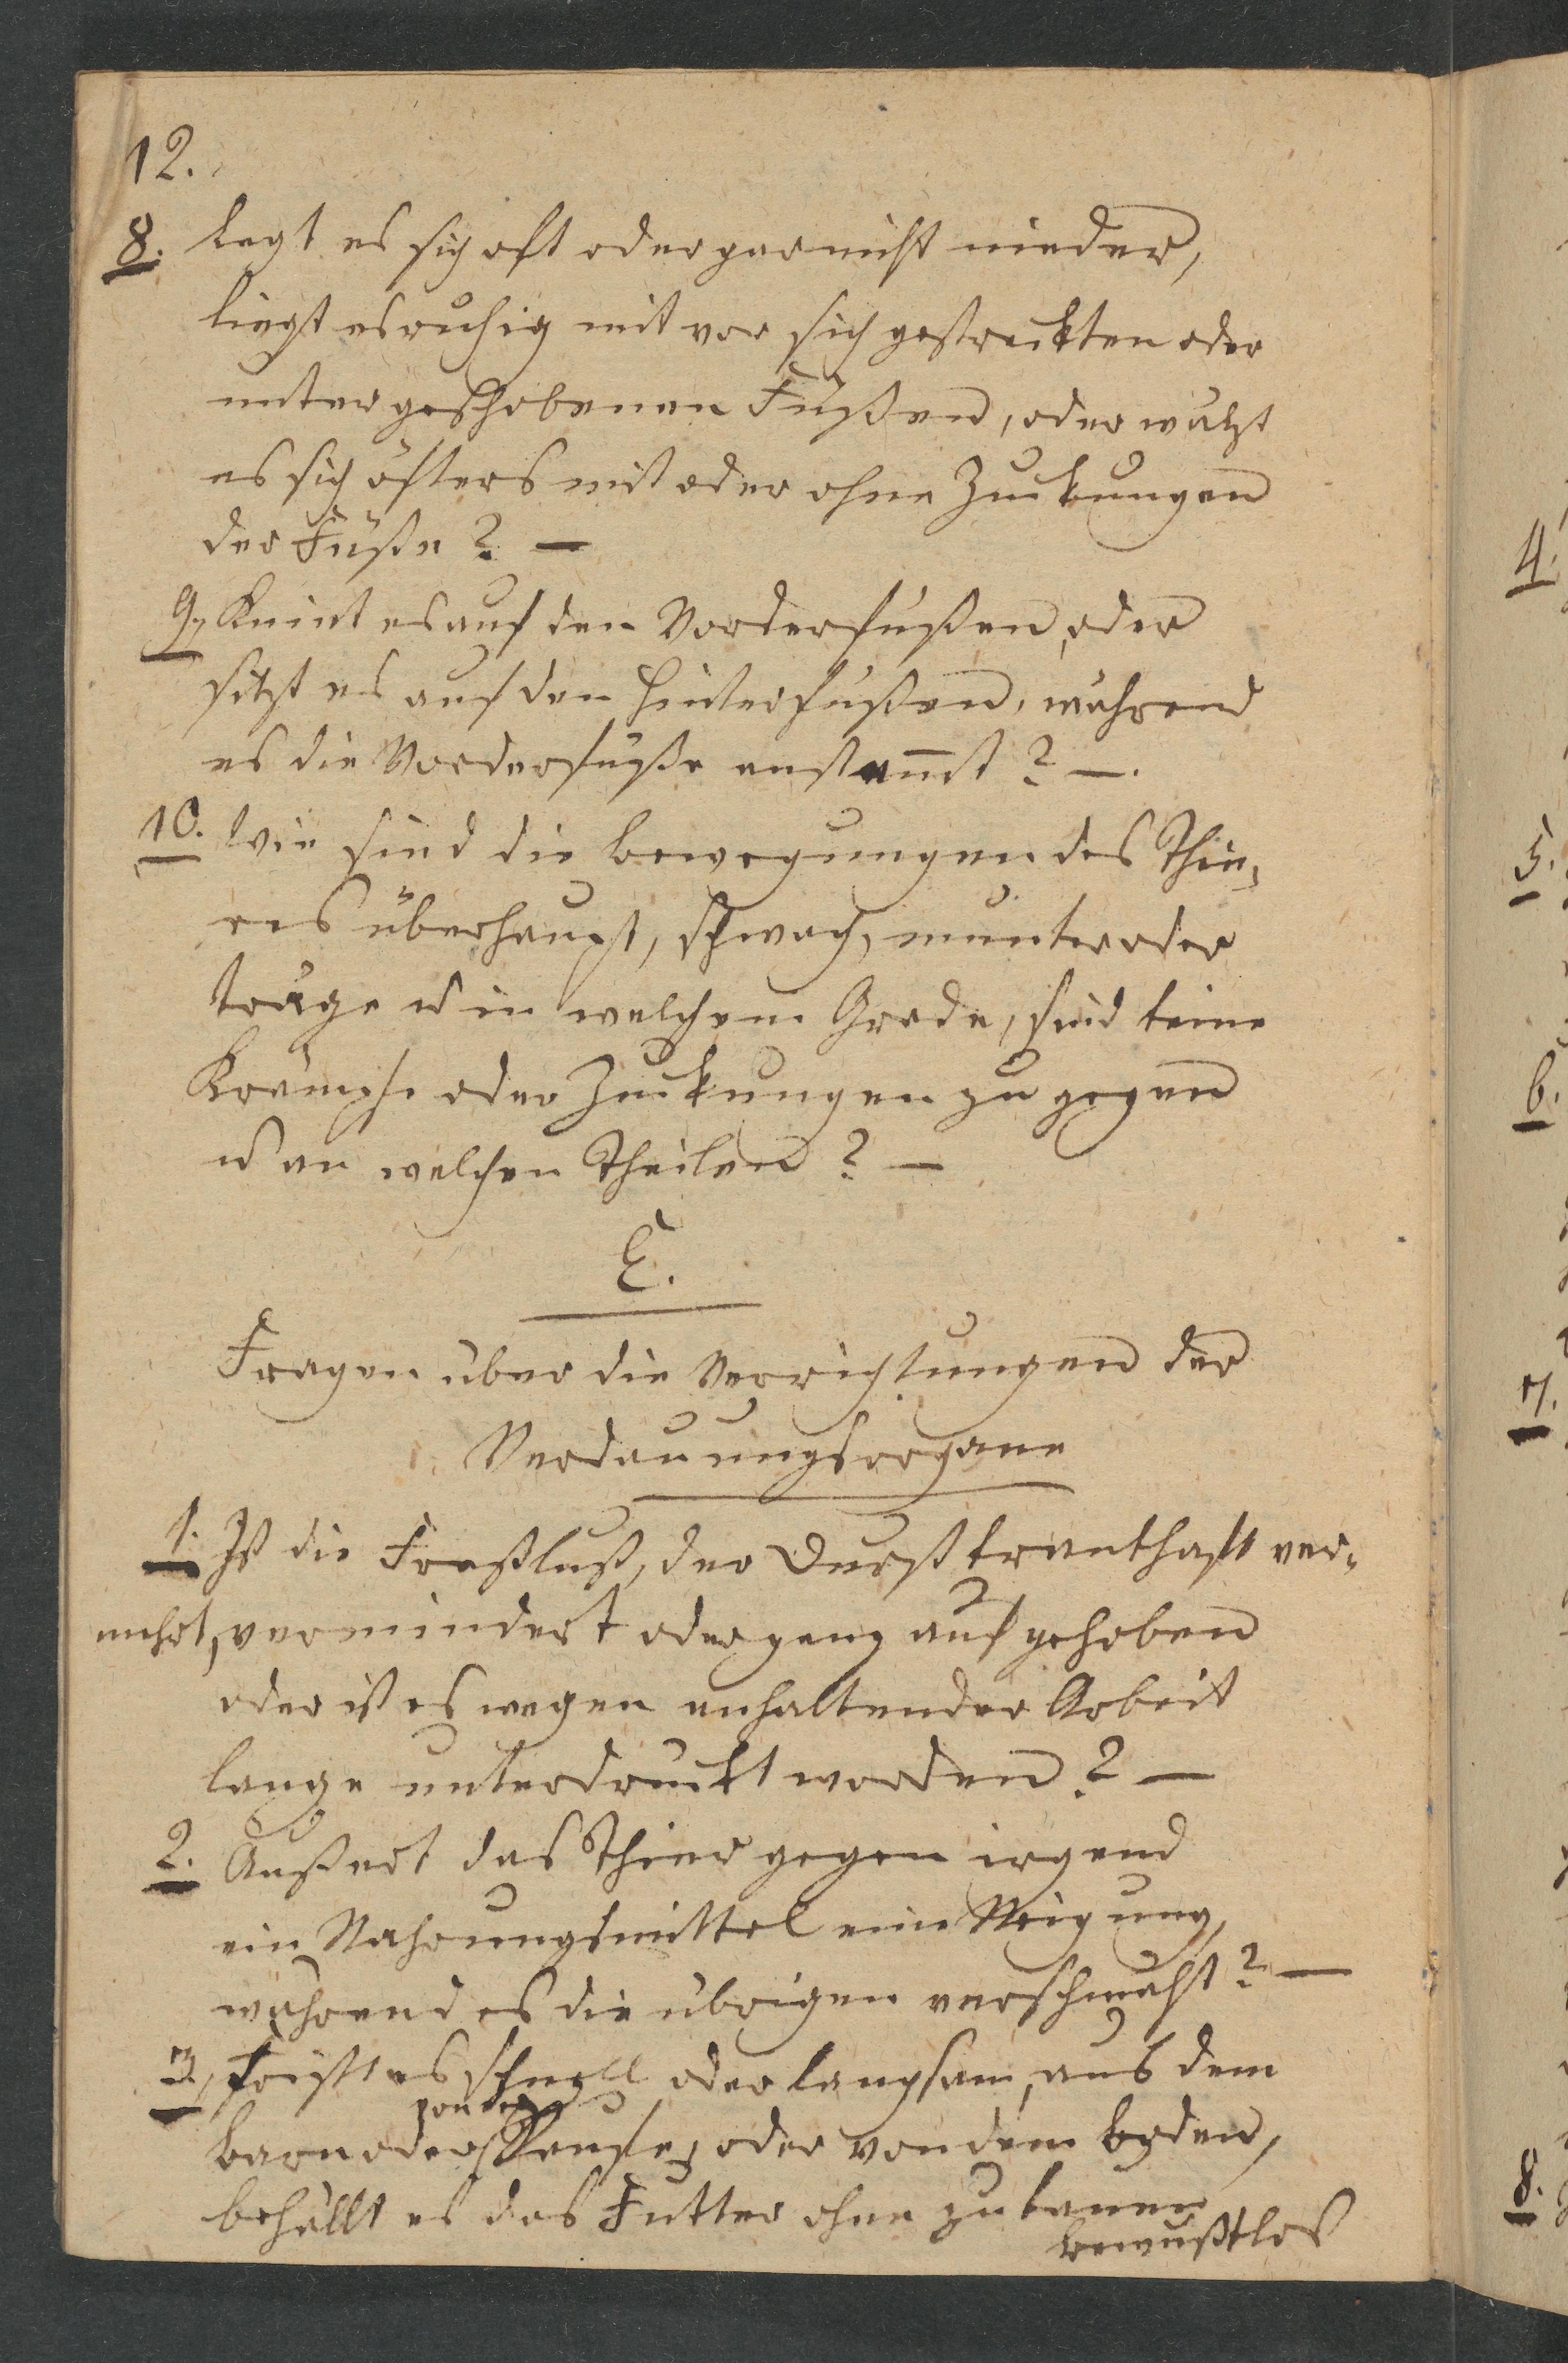 12.
8. legt es sich oft oder gar nicht nieder,
liegt es ruhig mit vor sich gestreckten oder
untergeschobenen Füßen, oder wälzt
es sich öfters mit oder ohne Zuckungen
der Füße? —
9. Kniet es auf den Vorderfüßen, oder
sitzt es auf den Hinterfüßen, während
es die Vorderfüße anstem̅t? —.
10. Wie sind die Bewegungen des Thie„
res überhaupt, schwach, munter oder
träge u in welchem Grade, sind keine
Krämpfe oder Zuckungen zu gegen
u an welchen Theilen? —
E.
Fragen über die Verrichtungen der
Verdauungsorgane
1. Ist die Freßlust, der Durst krankhaft ver„
mehrt, vermindert oder ganz aufgehoben
oder ist es wegen anhaltender Arbeit
lange unterdrückt worden? —
2. Äußert das Thier gegen irgend
ein Nahrungsmittel eine Neigung,
während es die übrigen verschmäht? —
3. frißt es schnell oder langsam, aus dem
Barn oder oder von dem Boden,
behällt es das Futter ohne zu kauen
bewußtlos
4.
5.
6.
7.
8.